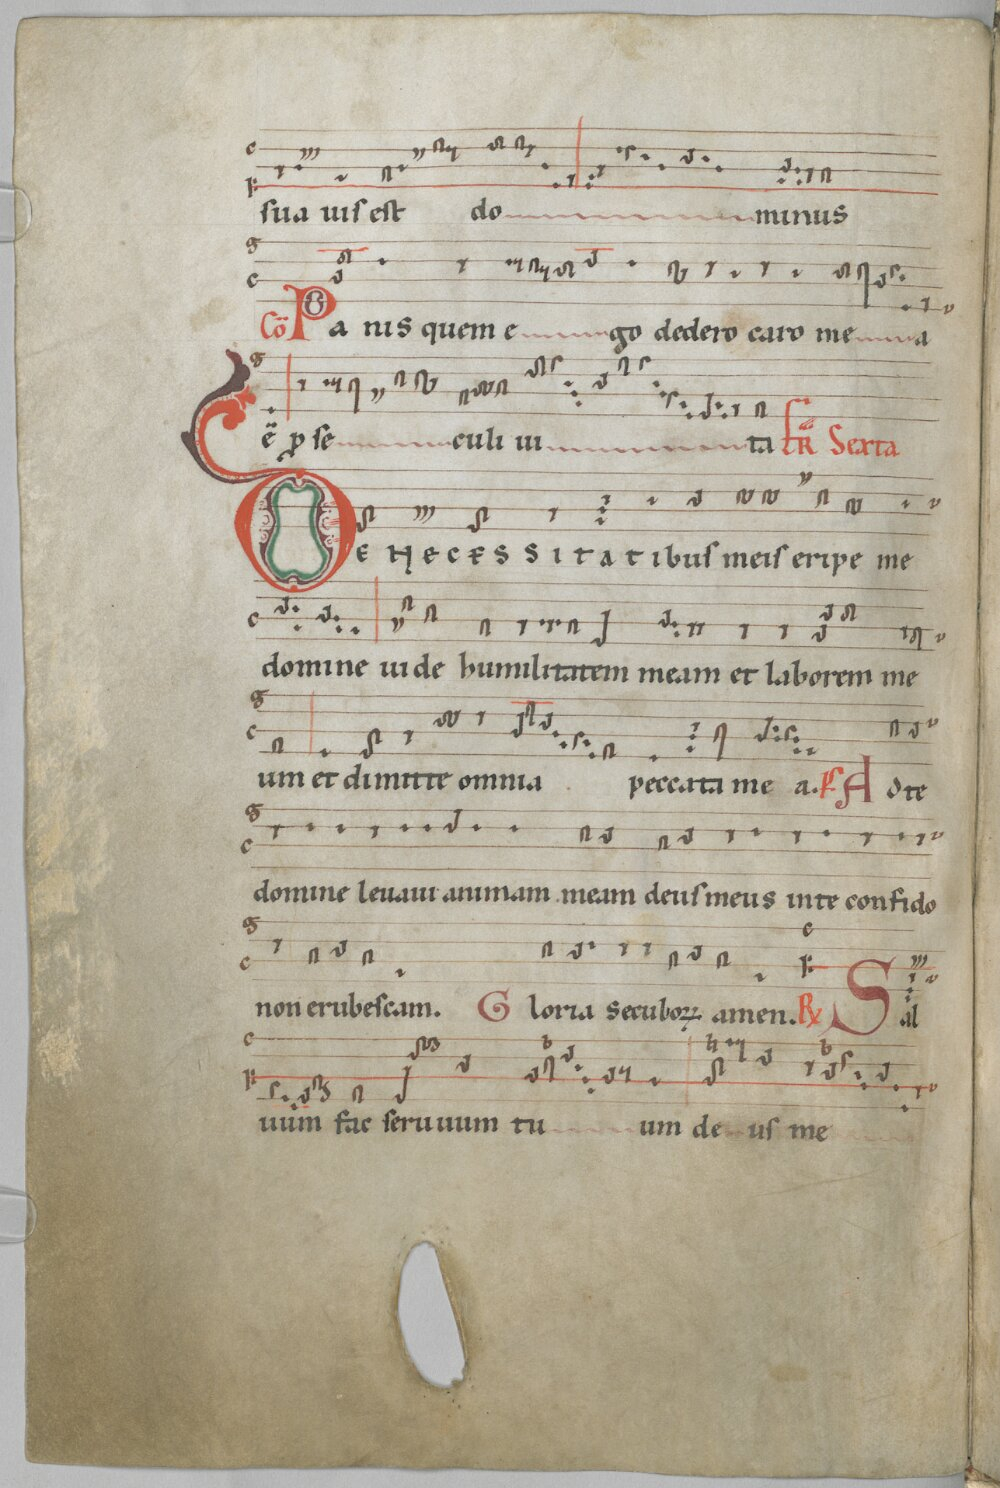 sua uis est do minus
Cō P a nis quem e go dedero caro me a
ē p se culi ui ta Fr̄ Sexta
DE NECESSITATibus meis eripe me
domine uide humilitatem meam et laborem me
um et dimitte omnia peccata me a. Ps Ad te
domine leuaui animam meam deus meus in te confido
non erubescam. Gloria seculorꝝ amen. R℣ Sal
uum fac seruum tu um de us me